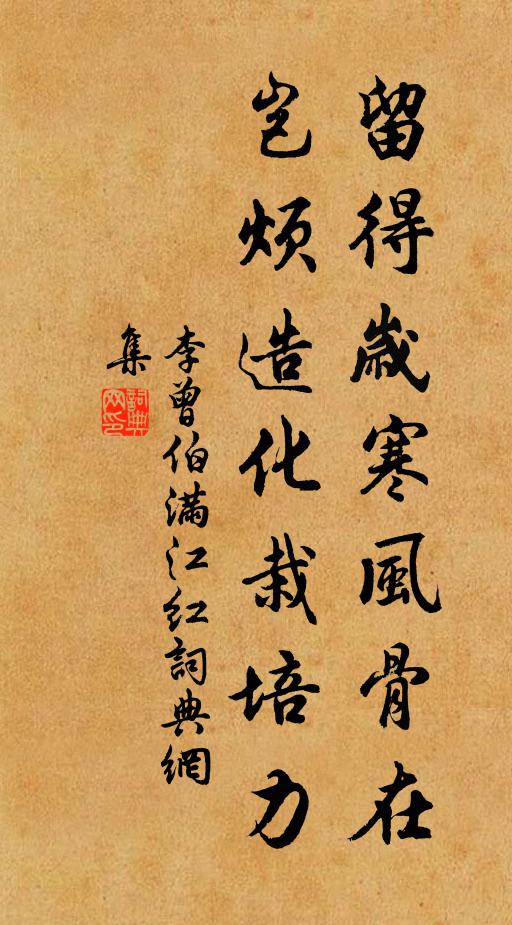 留得歲寒風骨在
豈煩造化栽培力
李曾伯滿江紅詞典網
集
詞典網印